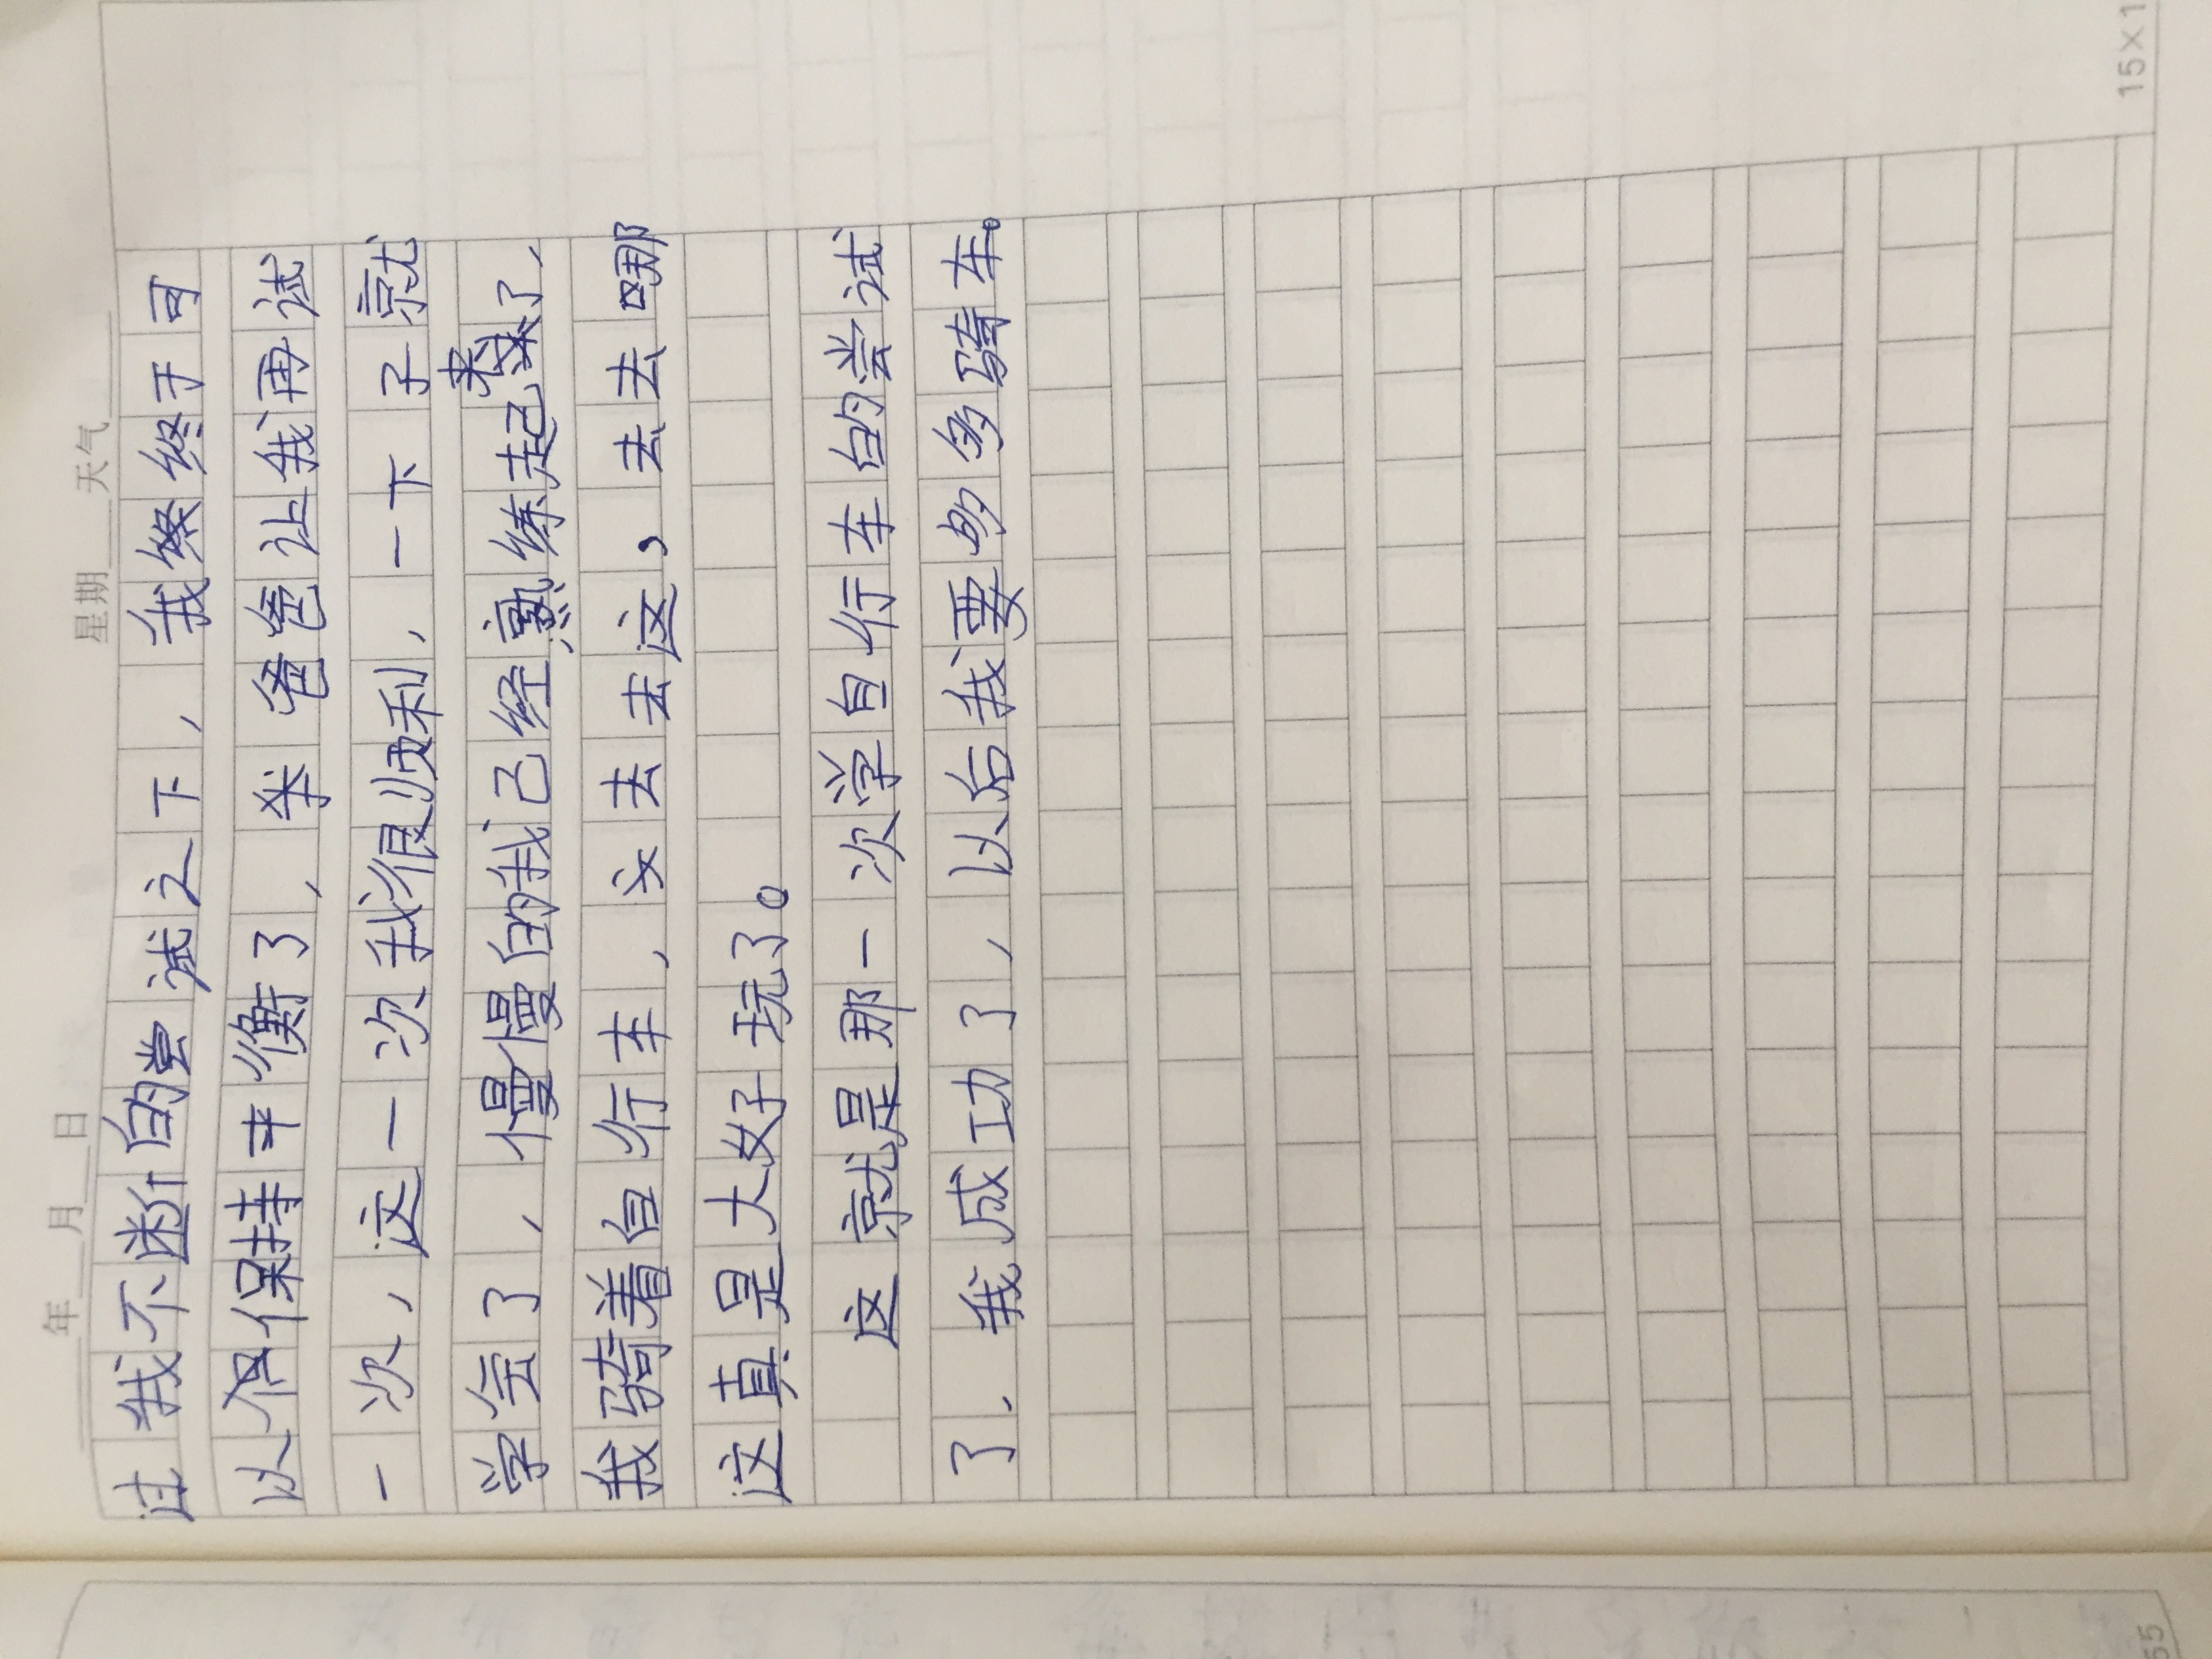 年 月 日 星期 天气
过我不断的尝试之下，我终终于可
以保持平衡了，爸爸让我再试
一次，这一次我很顺利，一下子就
学会了，慢慢的我己经熟练起来了，
我骑着自行车，去去这，去去哪
这真是大好玩了。
这就是那一次学自行车的尝试
了，我成功了，以后我要多多骑车。
15×1
55